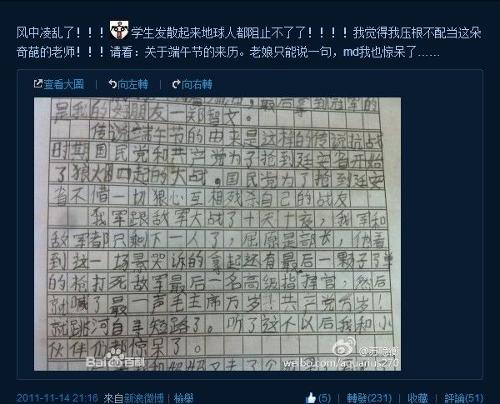 风中凌乱了！！！学生发散起来地球人都阻止不了了！！！！我觉得我压根不配当这朵
奇葩的老师！！请看：关于端午节的来历。老娘只能说一句，md我也惊呆了……
查看大圖 | 向左轉 | 向右轉
是我的好朋友一郑智文。
传说端午节的由来是这样的传说抗战
时期国民党和共产党为了抢到延安省开始
了狼烟四起的大战。国民党为了抢到延安
省不惜一切狠心互相残杀自己的战友
我军跟敌军大战了十天十夜，我军和
敌军都只剩下一人了，屈原是部长，他看
到这一场景哭诉的拿起还有最后一颗子弹
的枪打死敌军最后一名高级指挥官，然后
就喊了最一声毛主席万岁！共产党万岁！
就跳河自寻短路了。听了这个以后我和小
伙伴们都惊呆了。
Bai百科
weibo.com/aguarius270
2011-11-14 21:16 來自新浪微博 | 檢舉
(5) | 轉發(231) | 收藏 | 評論(51)